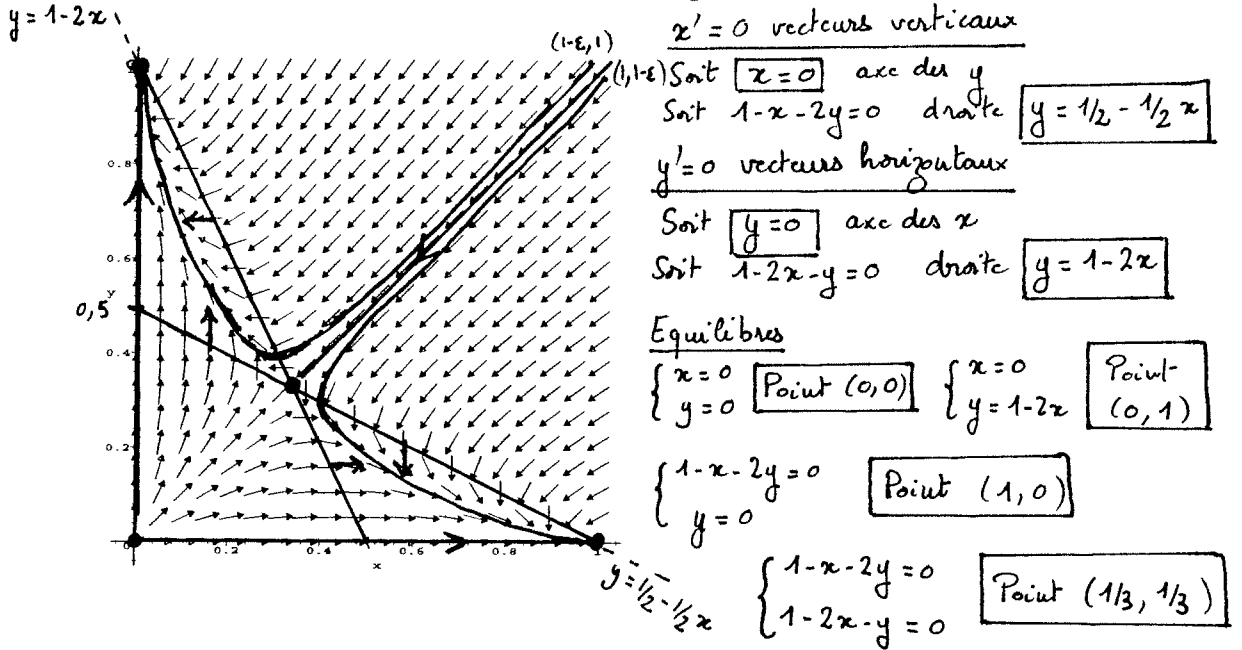 y = 1-2x
(1-ε,1)
(1,1-ε)
0.8
0.6
y
0,5
0.4
0.2
0
0.2
0.4
0.6
0.8
x
y = 1/2 - 1/2 x
x' = 0 vecteurs verticaux
Soit x=0 axe des y
Soit 1-x-2y=0 droite y = 1/2 - 1/2 x
y'=0 vecteurs horizontaux
Soit y=0 axe des x
Soit 1-2x-y=0 droite y = 1-2x
Equilibres
{ x=0
y=0 Point (0,0)
{ x=0
y=1-2x Point (0,1)
{ 1-x-2y=0
y=0 Point (1,0)
{ 1-x-2y=0
1-2x-y=0 Point (1/3, 1/3)